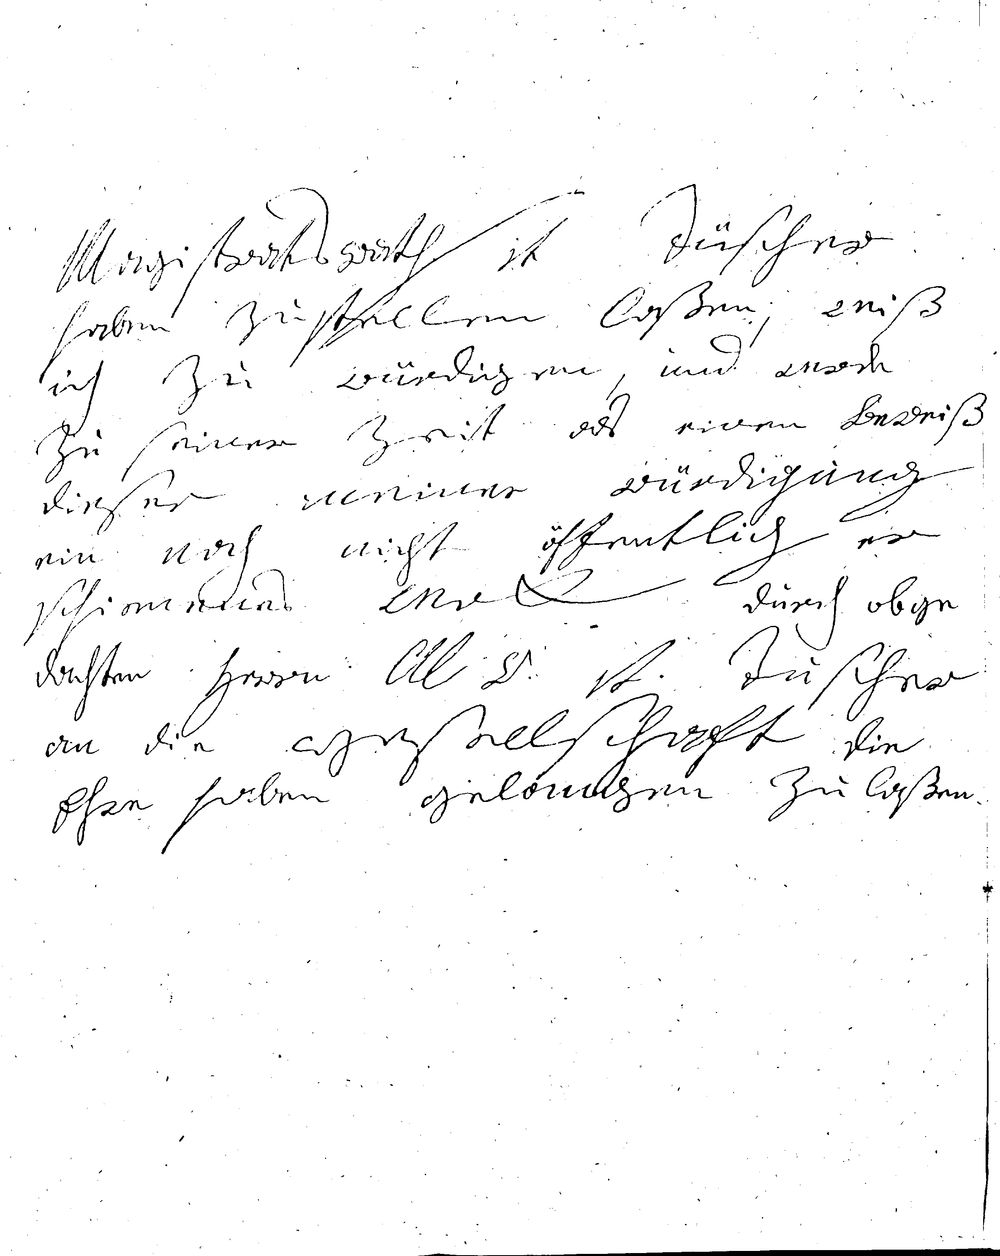 Magistratsrath v Tuscher
haben zustellen laßen, weiß
ich zu würdigen, und werde
zu seiner Zeit als einen Beweiß
dieser meiner würdigung
ein noch nicht öffentlich er
schienenes Werk durch obge
dachten Herrn M. R. v. Tuscher
an die Gesellschaft die
Ehre haben gelangen zu laßen.